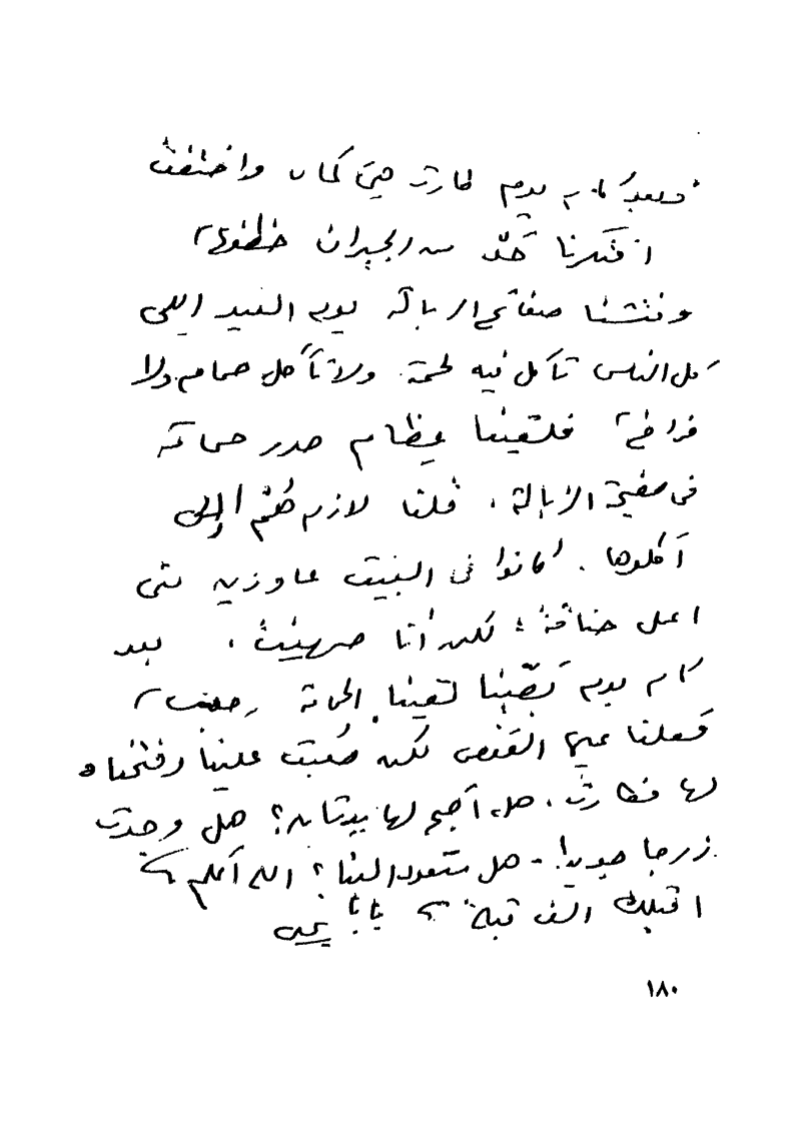 وبعد كام يوم طارت هي كمان واختفت
افتكرنا حَدّ من الجيران خطفها
وفتشنا صفائح الزبالة يوم العيد اللي
كل الناس تأكل فيه لحمة ولا تأكل حمام ولا
فراخ، فلقينا عِظام صدر حمامة
في صفيحة الزبالة، قلنا لازم هُمّ اللي
أكلوها. كانوا في البيت عاوزين مني
اعمل خناقة، لكن أنا صهينت، بعد
كام يوم بَصّينا لقينا الحمامة رجعت
فعلنا على القفص لكن صُعبت علينا وفتحنا
لها فطارت، هل أصبح لها بيتان؟ هل وجدت
زوجا جديدا - هل ستعود الينا؟ الله أعلم
اقبلك الف قبلة بابا يحيى
١٨٠